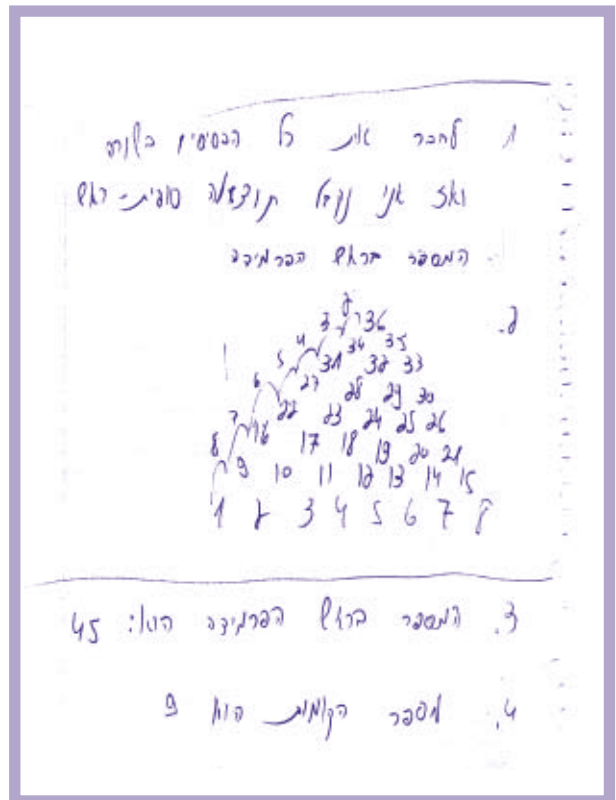 1 לחבר את כל הבסיסים בשורה
ואז אני נקבל תוצאה סופית - ראש
המספר בראש הפרמידה
2.
2
3 36
4 34 35
5 31 32 33
6 27 28 29 30
7 22 23 24 25 26
8 16 17 18 19 20 21
9 10 11 12 13 14 15
1 2 3 4 5 6 7 8
3. המספר בראש הפרמידה הוא: 45
4. מספר הקומות הוא 9